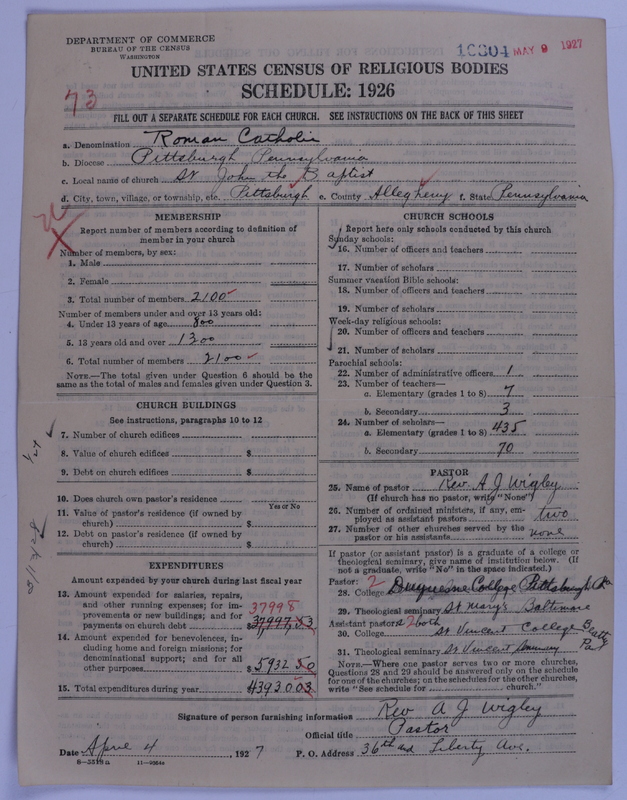 DEPARTMENT OF COMMERCE
BUREAU OF THE CENSUS
WASHINGTON
16804 MAY 9 1927
UNITED STATES CENSUS OF RELIGIOUS BODIES
SCHEDULE: 1926
73
FILL OUT A SEPARATE SCHEDULE FOR EACH CHURCH. SEE INSTRUCTIONS ON THE BACK OF THIS SHEET
a. Denomination Roman Catholic
b. Diocese Pittsburgh Pennsylvania
c. Local name of church St John the Baptist
d. City, town, village, or township, etc. Pittsburgh e. County Allegheny f. State Pennsylvania
MEMBERSHIP
Report number of members according to definition of
member in your church
Number of members, by sex:
1. Male
2. Female
3. Total number of members 2100
Number of members under and over 13 years old:
4. Under 13 years of age 800
5. 13 years old and over 1300
6. Total number of members 2100
NOTE.—The total given under Question 6 should be the
same as the total of males and females given under Question 3.
CHURCH BUILDINGS
See instructions, paragraphs 10 to 12
7. Number of church edifices
8. Value of church edifices $
9. Debt on church edifices $
10. Does church own pastor's residence
Yes or No
11. Value of pastor's residence (if owned by
church) $
12. Debt on pastor's residence (if owned by
church) $
EXPENDITURES
Amount expended by your church during last fiscal year
13. Amount expended for salaries, repairs,
and other running expenses; for im-
provements or new buildings; and for
payments on church debt $ 37997.53
37998
14. Amount expended for benevolences, in-
cluding home and foreign missions; for
denominational support; and for all
other purposes $ 5932 50
15. Total expenditures during year 43930 03
CHURCH SCHOOLS
Report here only schools conducted by this church
Sunday schools:
16. Number of officers and teachers
17. Number of scholars
Summer vacation Bible schools:
18. Number of officers and teachers
19. Number of scholars
Week-day religious schools:
20. Number of officers and teachers
21. Number of scholars
Parochial schools:
22. Number of administrative officers 1
23. Number of teachers—
a. Elementary (grades 1 to 8) 7
b. Secondary 3
24. Number of scholars—
a. Elementary (grades 1 to 8) 435
b. Secondary 70
PASTOR
25. Name of pastor Rev A J Wigley
(If church has no pastor, write "None")
26. Number of ordained ministers, if any, em-
ployed as assistant pastors two
27. Number of other churches served by the
pastor or his assistants none
If pastor (or assistant pastor) is a graduate of a college or
theological seminary, give name of institution below. (If
not a graduate, write "No" in the space indicated.)
Pastor: 2
28. College Duquesne College Pittsburgh Pa
29. Theological seminary St Mary's Baltimore
Assistant pastors 2 both
30. College St Vincent College Beatty Pa
31. Theological seminary St Vincent Seminary
NOTE.—Where one pastor serves two or more churches,
Questions 28 and 29 should be answered only on the schedule
for one of the churches; on the schedules for the other churches,
write "See schedule for church."
Signature of person furnishing information Rev A J Wigley
Official title Pastor
Date April 4 1927 P. O. Address 36th and Liberty Ave.